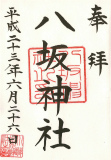 奉拝
八坂神社
平成二十三年六月二十六日